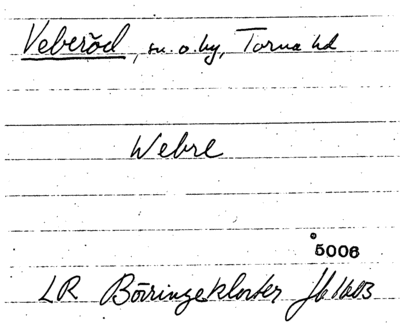 Veberöd, sn. o. by, Torna hd
Webre
5006
LR Börringekloster Jb 1603